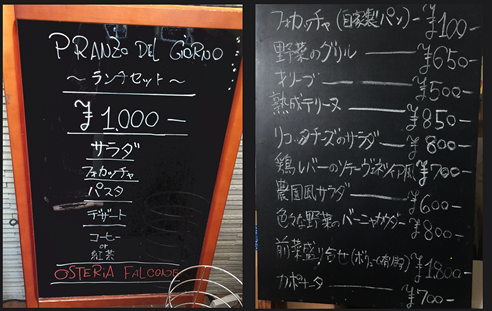 PRANZO DEL GIORNO
～ランチセット～
¥1.000-
サラダ
フォカッチャ
パスタ
デザート
コーヒー
or
紅茶
OSTERIA FALCONE
フォカッチャ(自家製パン)-¥100-
野菜のグリル ― ¥650-
オリーブ ― ¥500-
熟成テリーヌ ― ¥850-
リコッタチーズのサラダ ― ¥800-
鶏レバーのソテーヴェネツィア風 ¥700-
農園風サラダ ― ¥600-
色々な野菜のバーニャカウダ ― ¥800-
前菜盛り合せ ¥1.800-
カポナータ ― ¥700-